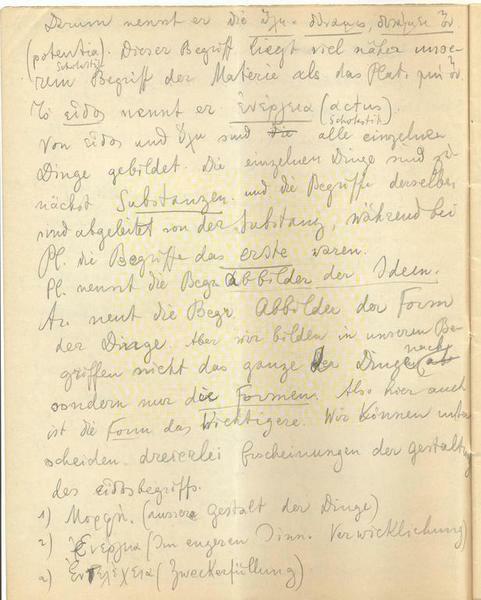 Darum nennt er die ὕλη δύναμις, δυνάμει ὄν
(potentia). Dieser Begriff liegt viel näher unse-
Scholastik
rem Begriff der Materie als das Plat. μὴ ὄν.
Τὸ εἶδος nennt er ἐνέργεια (actus).
Scholastik
Von εἶδος und ὕλη sind die alle einzelnen
Dinge gebildet. Die einzelnen Dinge sind zu-
nächst Substanzen und die Begriffe derselben
sind abgeleitet von der Substanz, während bei
Pl. die Begriffe das erste waren.
Pl. nennt die Begr. Abbilder der Ideen.
Ar. nent die Begr. Abbilder der Form
der Dinge. Aber wir bilden in unseren Be-
griffen nicht das ganze der Dinge nach
sondern nur die Formen. Also hier auch
ist die Form das Wichtigere. Wir können unter
scheiden dreierlei Erscheinungen der gestaltung
des εἶδοsbegriffs.
1) Μορφή. (äussere Gestalt der Dinge)
2) Ἐνέργεια (Im engeren Sinn. Verwicklichung)
3) Ἐντελέχεια (Zweckerfüllung)